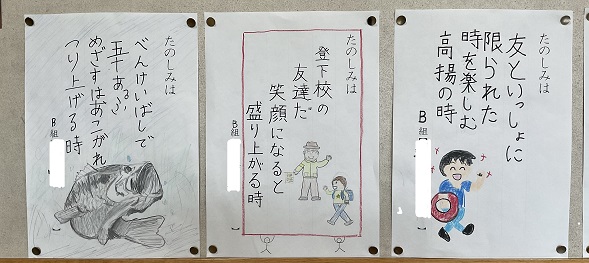 たのしみは
べんけいばしで
五十あるき
めざすはあこがれ
つり上げる時
B組
たのしみは
登下校の
友達だ
笑顔になると
盛り上がる時
B組
たのしみは
友といっしょに
限られた
時を楽しむ
高揚の時
B組